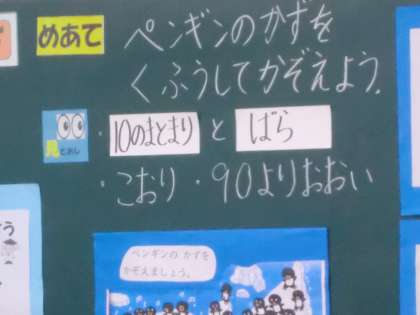 めあて
ペンギンのかずを
くふうしてかぞえよう.
見とおし
・10のまとまりとばら
・こおり・90よりおおい
ペンギンの かずを
かぞえましょう。